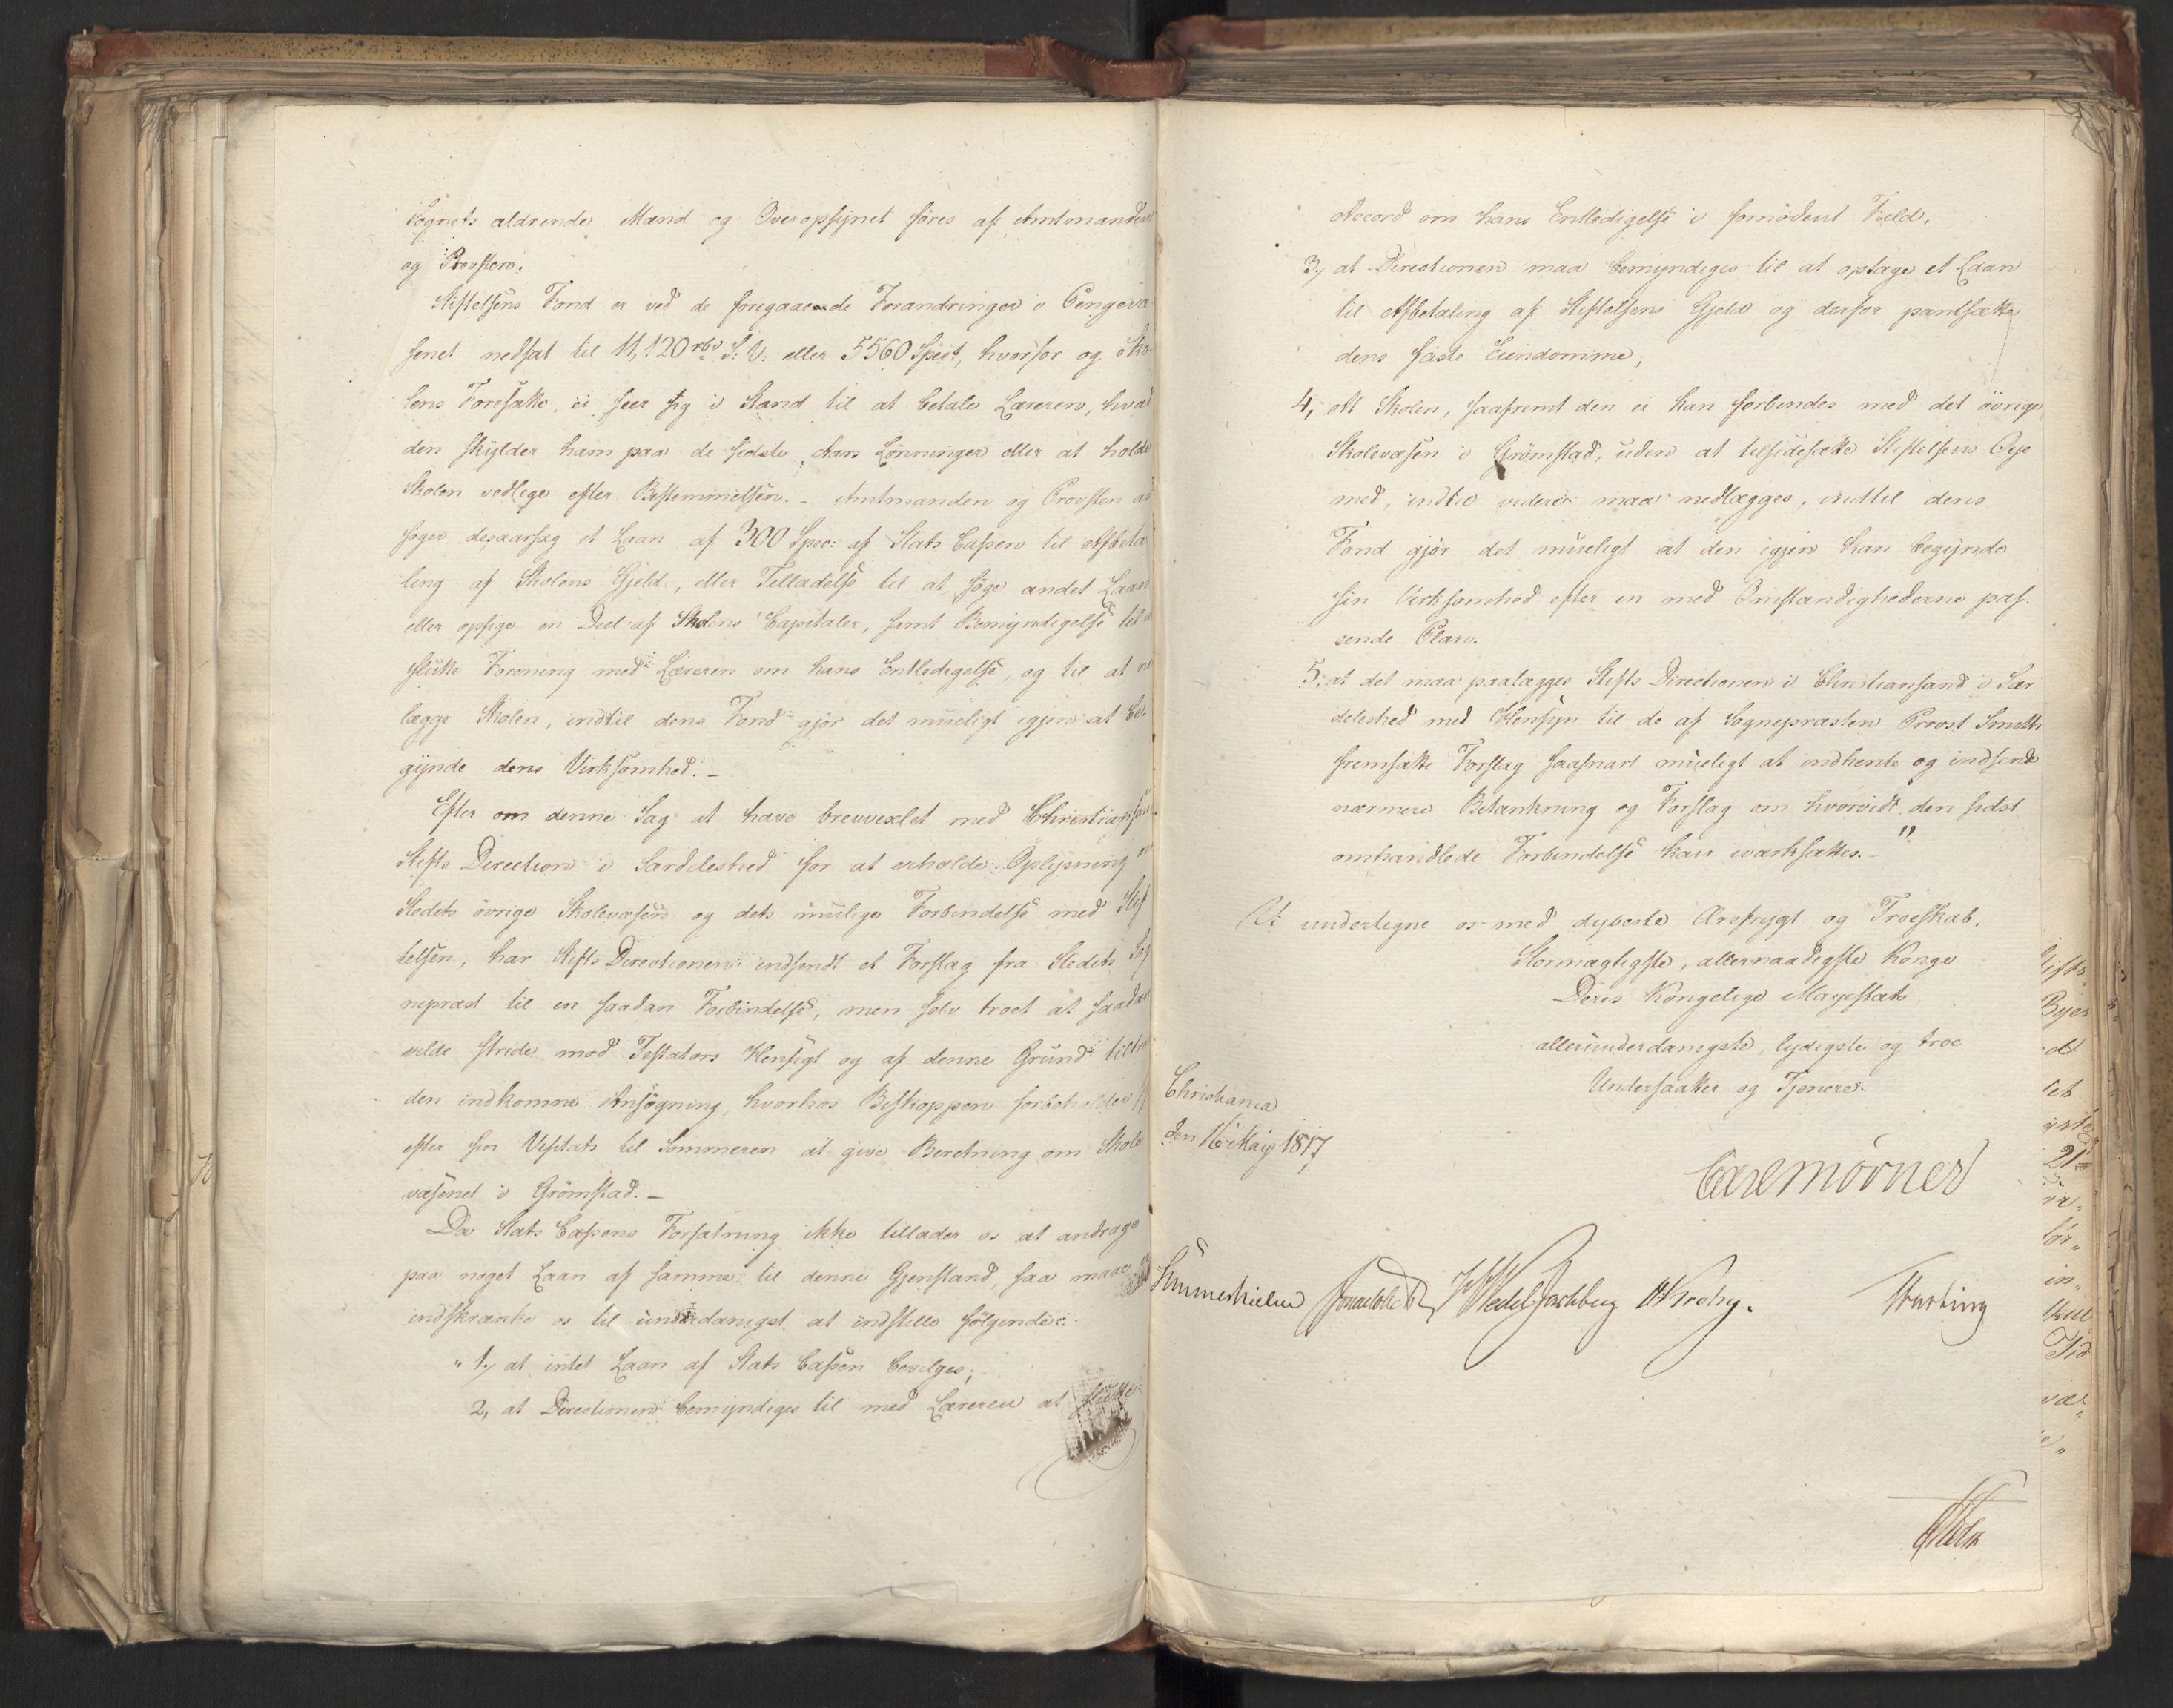 Sognets aldrende Mænd og Overopsynet føres af Amtmanden
og Provsten.
Stiftelsens Fond er ved de foregaaende Forandringer i Pengevæ
senet nedsat til 11,120 rbd S: V: eller 5560 Spect, hvorfor og Sko-
lens Foresatte ei seer sig i Stand til at betale Læreren, hvad
den skylder ham paa de sidste Aars Lönninger eller at holde
Skolen vedlige efter Bestemmelsen. - Amtmanden og Provsten an
söger desaarsag et Laan af 300 Spec: af Stats Cassen til Afbeta
ling af Skolens Gjeld, eller Tilladelse til at söge andet Laan
eller opsige en Deel af Skolens Capitaler, samt Bemyndigelse til at
slutte Forening med Læreren om hans Entledigelse, og til at ned
lægge Skolen, indtil dens Fond gjör det mueligt igjen at be-
gynde dens Virksomhed. -
Efter om denne Sag at have brevvexlet med Christiansands
Stifts Direction i Særdeleshed for at erholde Oplysning om
Stedets övrige Skolevæsen og dets mulige Forbindelse med Stif
telsen, har Stifts Directionen indsendt et Forslag fra Stedets Sog
nepræst til en saadan Forbindelse, men selv troet at saadan
vilde stride mod Testators Hensigt og af denne Grund tiltraadt
den indkomne Ansögning, hvorhos Biskoppen forbeholder sig
efter sin Visitats til Sommeren at give Beretning om Skole
væsenet i Grömstad. -
Da Stats Cassens Forfatning ikke tillader os at andrage
paa noget Laan af samme til denne Gjenstand, saa maae
indskrænke os til underdanigst at indstille fölgende:
" 1, at intet Laan af Stats Cassen bevilges;
2, at Directionen bemyndiges til med Læreren at slutte
Accord om hans Entledigelse i fornödent Fald.
3, at Directionen maa bemyndiges til at optage et Laan
til Afbetaling af Stiftelsens Gjeld og derfor pantsætte
dens faste Eiendomme;
4, At Skolen, saafremt den ei kan forbindes med det övrige
Skolevæsen i Grömstad, uden at tilsidesætte Stiftelsens Öje
med, indtil videre maa nedlægges, indtil dens
Fond gjör det mueligt at den igjen kan begynde
sin Virksomhed efter en med Omstændighederne pas-
sende Plan.
5, at det maa paalægges Stifts Directionen i Christiansand i Sær
deleshed med Hensyn til de af Sognepræsten Provst Smith
fremsatte Forslag saasnart mueligt at indhente og indsende
nærmere Betænkning og Forslag om hvorvidt den sidst
omhandlede Forbindelse kan iværksættes. - "
Vi undertegne os med dybeste Ærefrygt og Troeskab.
Stormægtigste, allernaadigste Konge
Deres Kongelige Majestæts
allerunderdanigste, lydigste og troe
Undersaatter og Tjenere
Christiania
den 16 May 1817
Carl Mörner
Sommerhielm WWedel Jarlsberg HKrohg.